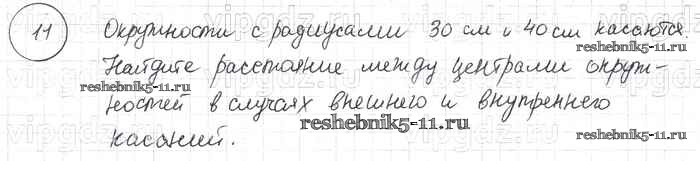 11 Окружности с радиусами 30 см и 40 см касаются.
Найдите расстояние между центрами окруж-
ностей в случаях внешнего и внутреннего
касаний.
reshebnik5-11.ru
reshebnik5-11.ru
reshebnik5-11.ru
reshebnik5-11.ru